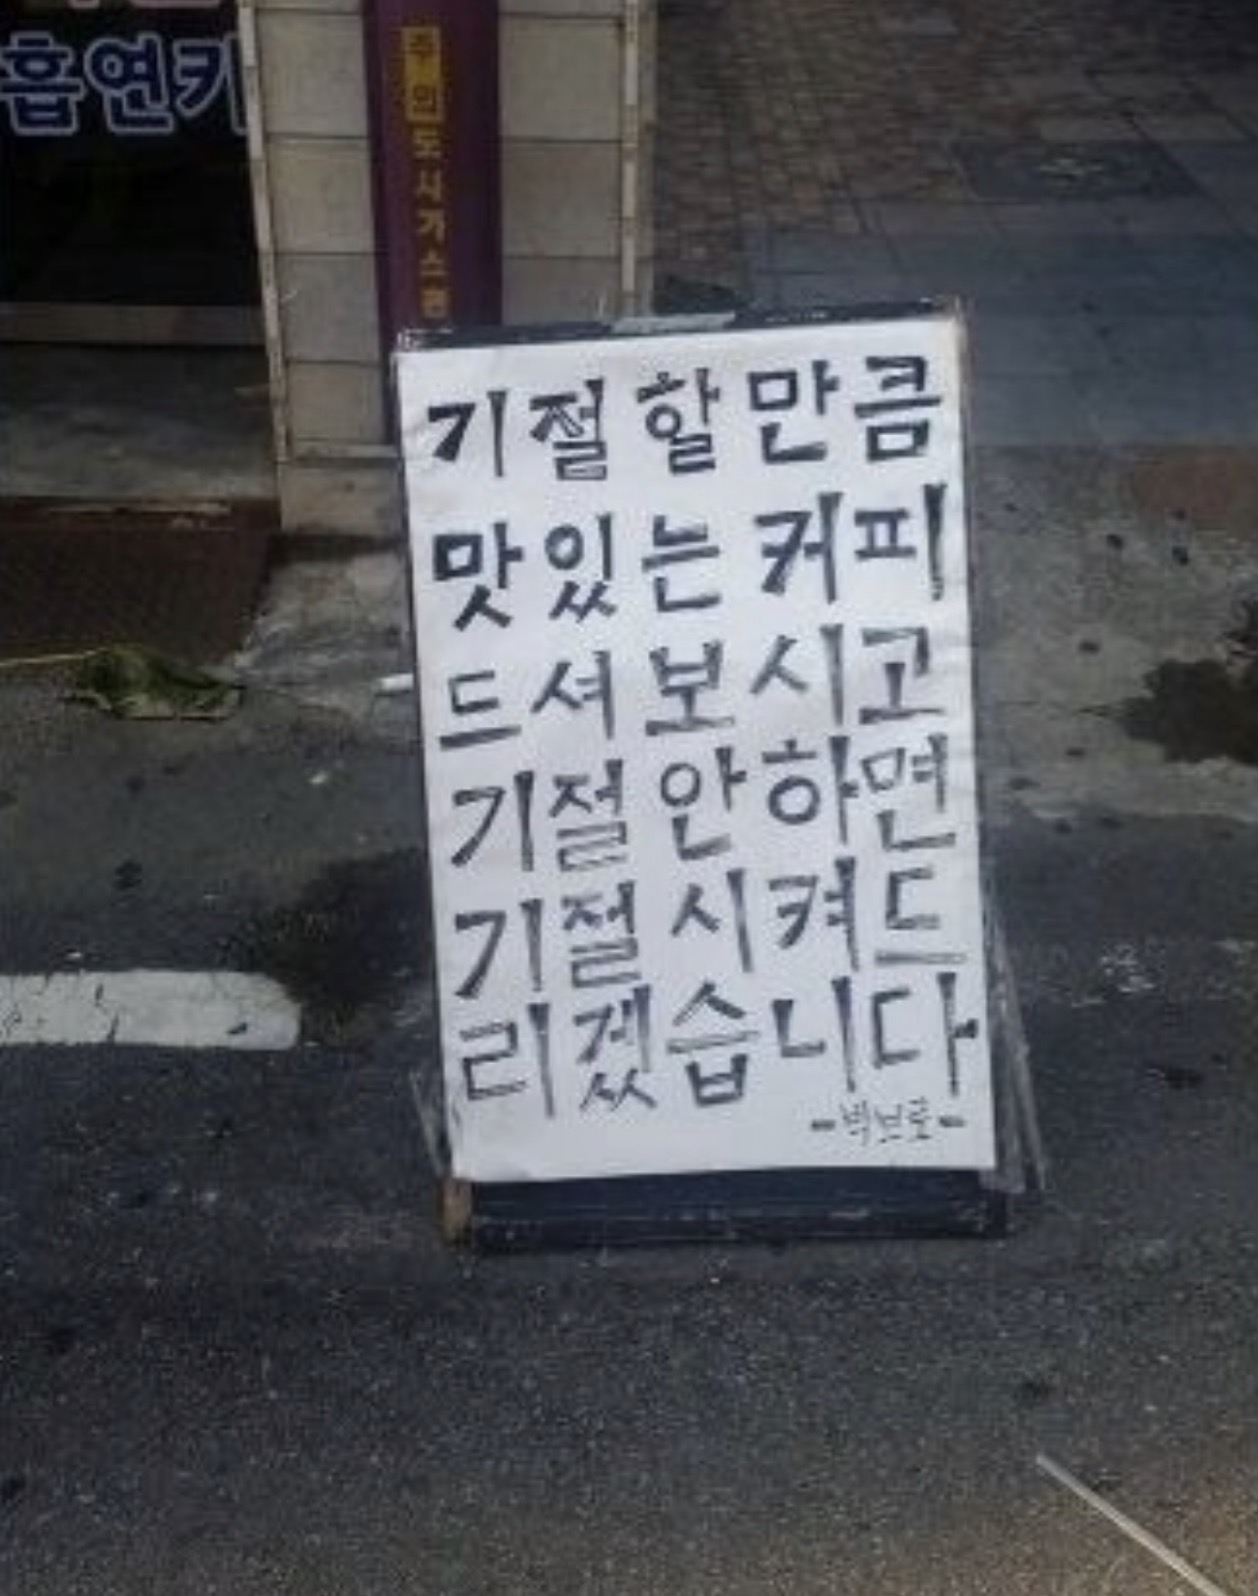 흡연카
주의도시가스관
기절할만큼
맛있는커피
드셔보시고
기절안하면
기절시켜드
리겠습니다